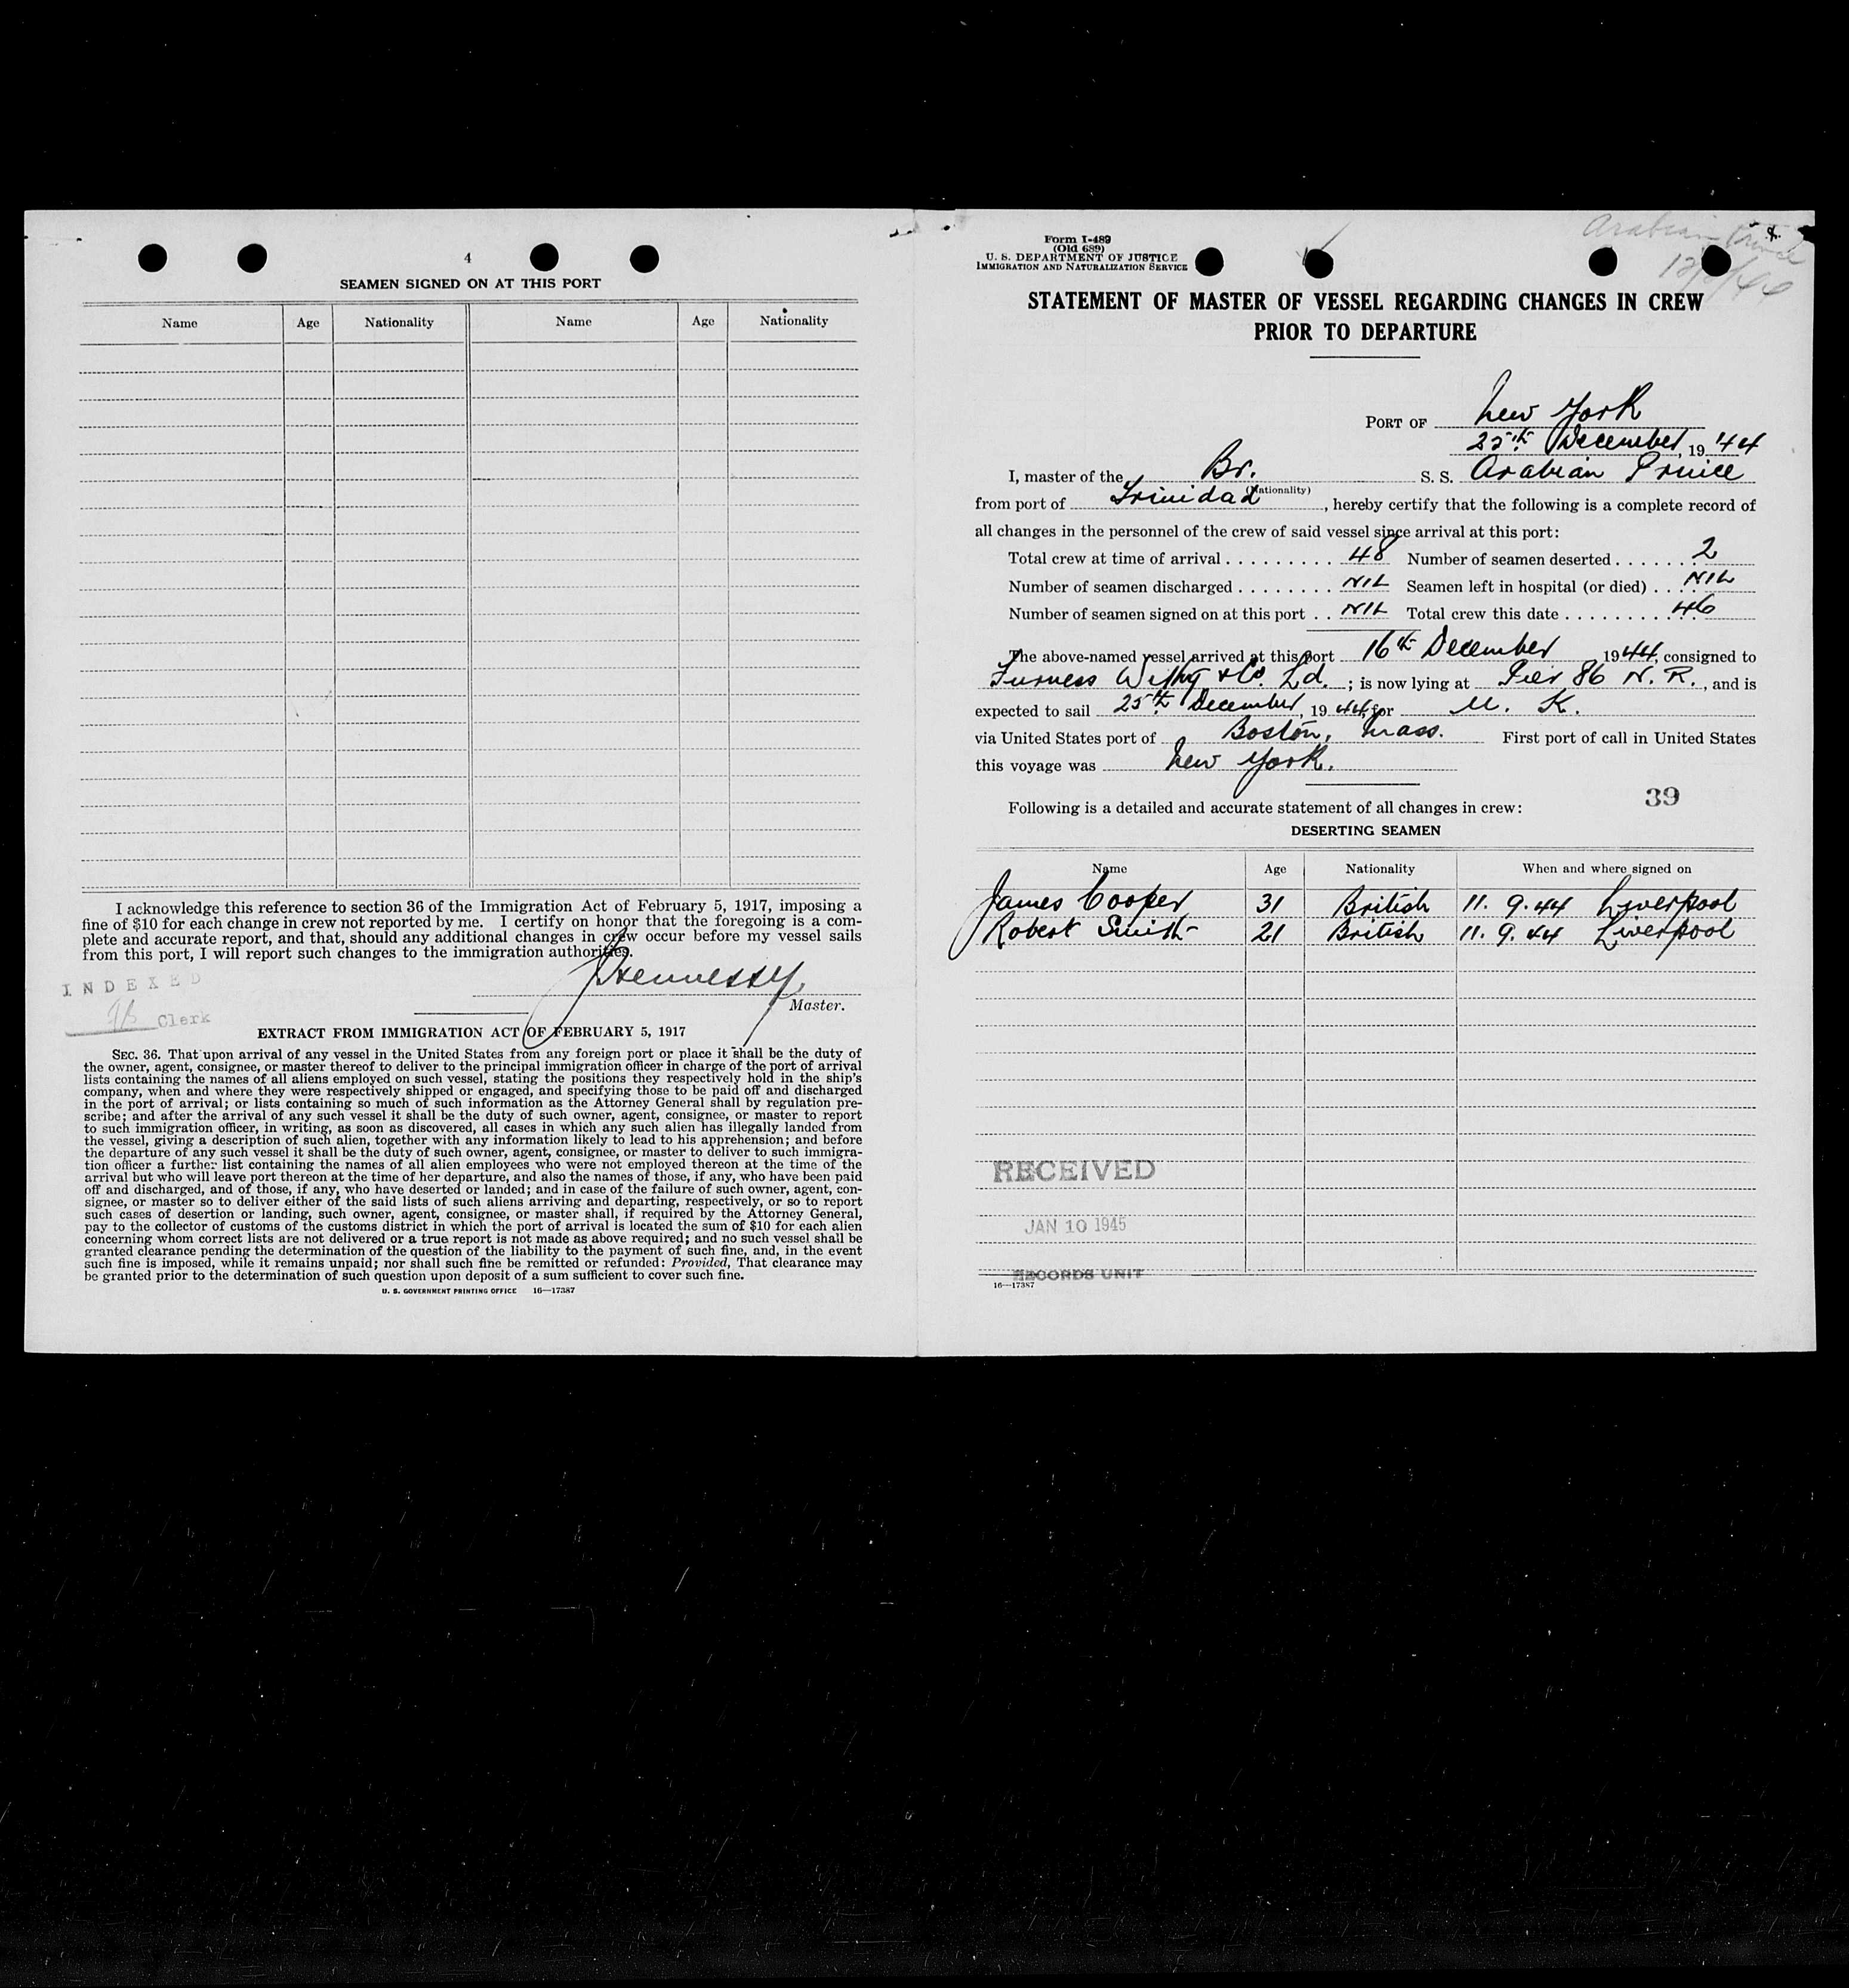 4
SEAMEN SIGNED ON AT THIS PORT
Name Age Nationality Name Age Nationality
I acknowledge this reference to section 36 of the Immigration Act of February 5, 1917, imposing a
fine of $10 for each change in crew not reported by me. I certify on honor that the foregoing is a com-
plete and accurate report, and that, should any additional changes in crew occur before my vessel sails
from this port, I will report such changes to the immigration authorities.
Hennessy
Master.
INDEXED
Clerk
EXTRACT FROM IMMIGRATION ACT OF FEBRUARY 5, 1917
SEC. 36. That upon arrival of any vessel in the United States from any foreign port or place it shall be the duty of
the owner, agent, consignee, or master thereof to deliver to the principal immigration officer in charge of the port of arrival
lists containing the names of all aliens employed on such vessel, stating the positions they respectively hold in the ship's
company, when and where they were respectively shipped or engaged, and specifying those to be paid off and discharged
in the port of arrival; or lists containing so much of such information as the Attorney General shall by regulation pre-
scribe; and after the arrival of any such vessel it shall be the duty of such owner, agent, consignee, or master to report
to such immigration officer, in writing, as soon as discovered, all cases in which any such alien has illegally landed from
the vessel, giving a description of such alien, together with any information likely to lead to his apprehension; and before
the departure of any such vessel it shall be the duty of such owner, agent, consignee, or master to deliver to such immigra-
tion officer a further list containing the names of all alien employees who were not employed thereon at the time of the
arrival but who will leave port thereon at the time of her departure, and also the names of those, if any, who have been paid
off and discharged, and of those, if any, who have deserted or landed; and in case of the failure of such owner, agent, con-
signee, or master so to deliver either of the said lists of such aliens arriving and departing, respectively, or so to report
such cases of desertion or landing, such owner, agent, consignee, or master shall, if required by the Attorney General,
pay to the collector of customs of the customs district in which the port of arrival is located the sum of $10 for each alien
concerning whom correct lists are not delivered or a true report is not made as above required; and no such vessel shall be
granted clearance pending the determination of the question of the liability to the payment of such fine, and, in the event
such fine is imposed, while it remains unpaid; nor shall such fine be remitted or refunded: Provided, That clearance may
be granted prior to the determination of such question upon deposit of a sum sufficient to cover such fine.
U. S. GOVERNMENT PRINTING OFFICE 16—17387
Arabian Prince
Form I-489
(Old 689)
U. S. DEPARTMENT OF JUSTICE
IMMIGRATION AND NATURALIZATION SERVICE
STATEMENT OF MASTER OF VESSEL REGARDING CHANGES IN CREW
PRIOR TO DEPARTURE
PORT OF New York
25th December, 19 44
I, master of the Br. S. S. Arabian Prince
(Nationality)
from port of Trinidad, hereby certify that the following is a complete record of
all changes in the personnel of the crew of said vessel since arrival at this port:
Total crew at time of arrival . . . . . . . . . . 48 Number of seamen deserted . . . . . . . 2
Number of seamen discharged . . . . . . . . NIL Seamen left in hospital (or died) . . . NIL
Number of seamen signed on at this port . . NIL Total crew this date . . . . . . . . . . 46
The above-named vessel arrived at this port 16th December 1944, consigned to
Furness Withy & Co. Ld. ; is now lying at Pier 86 N. R., and is
expected to sail 25th December, 19 44, for U. K.
via United States port of Boston, Mass. First port of call in United States
this voyage was New York.
39
Following is a detailed and accurate statement of all changes in crew:
DESERTING SEAMEN
Name Age Nationality When and where signed on
James Cooper 31 British 11. 9. 44 Liverpool
Robert Smith 21 British 11. 9. 44 Liverpool
RECEIVED
JAN 10 1945
RECORDS UNIT
16—17387